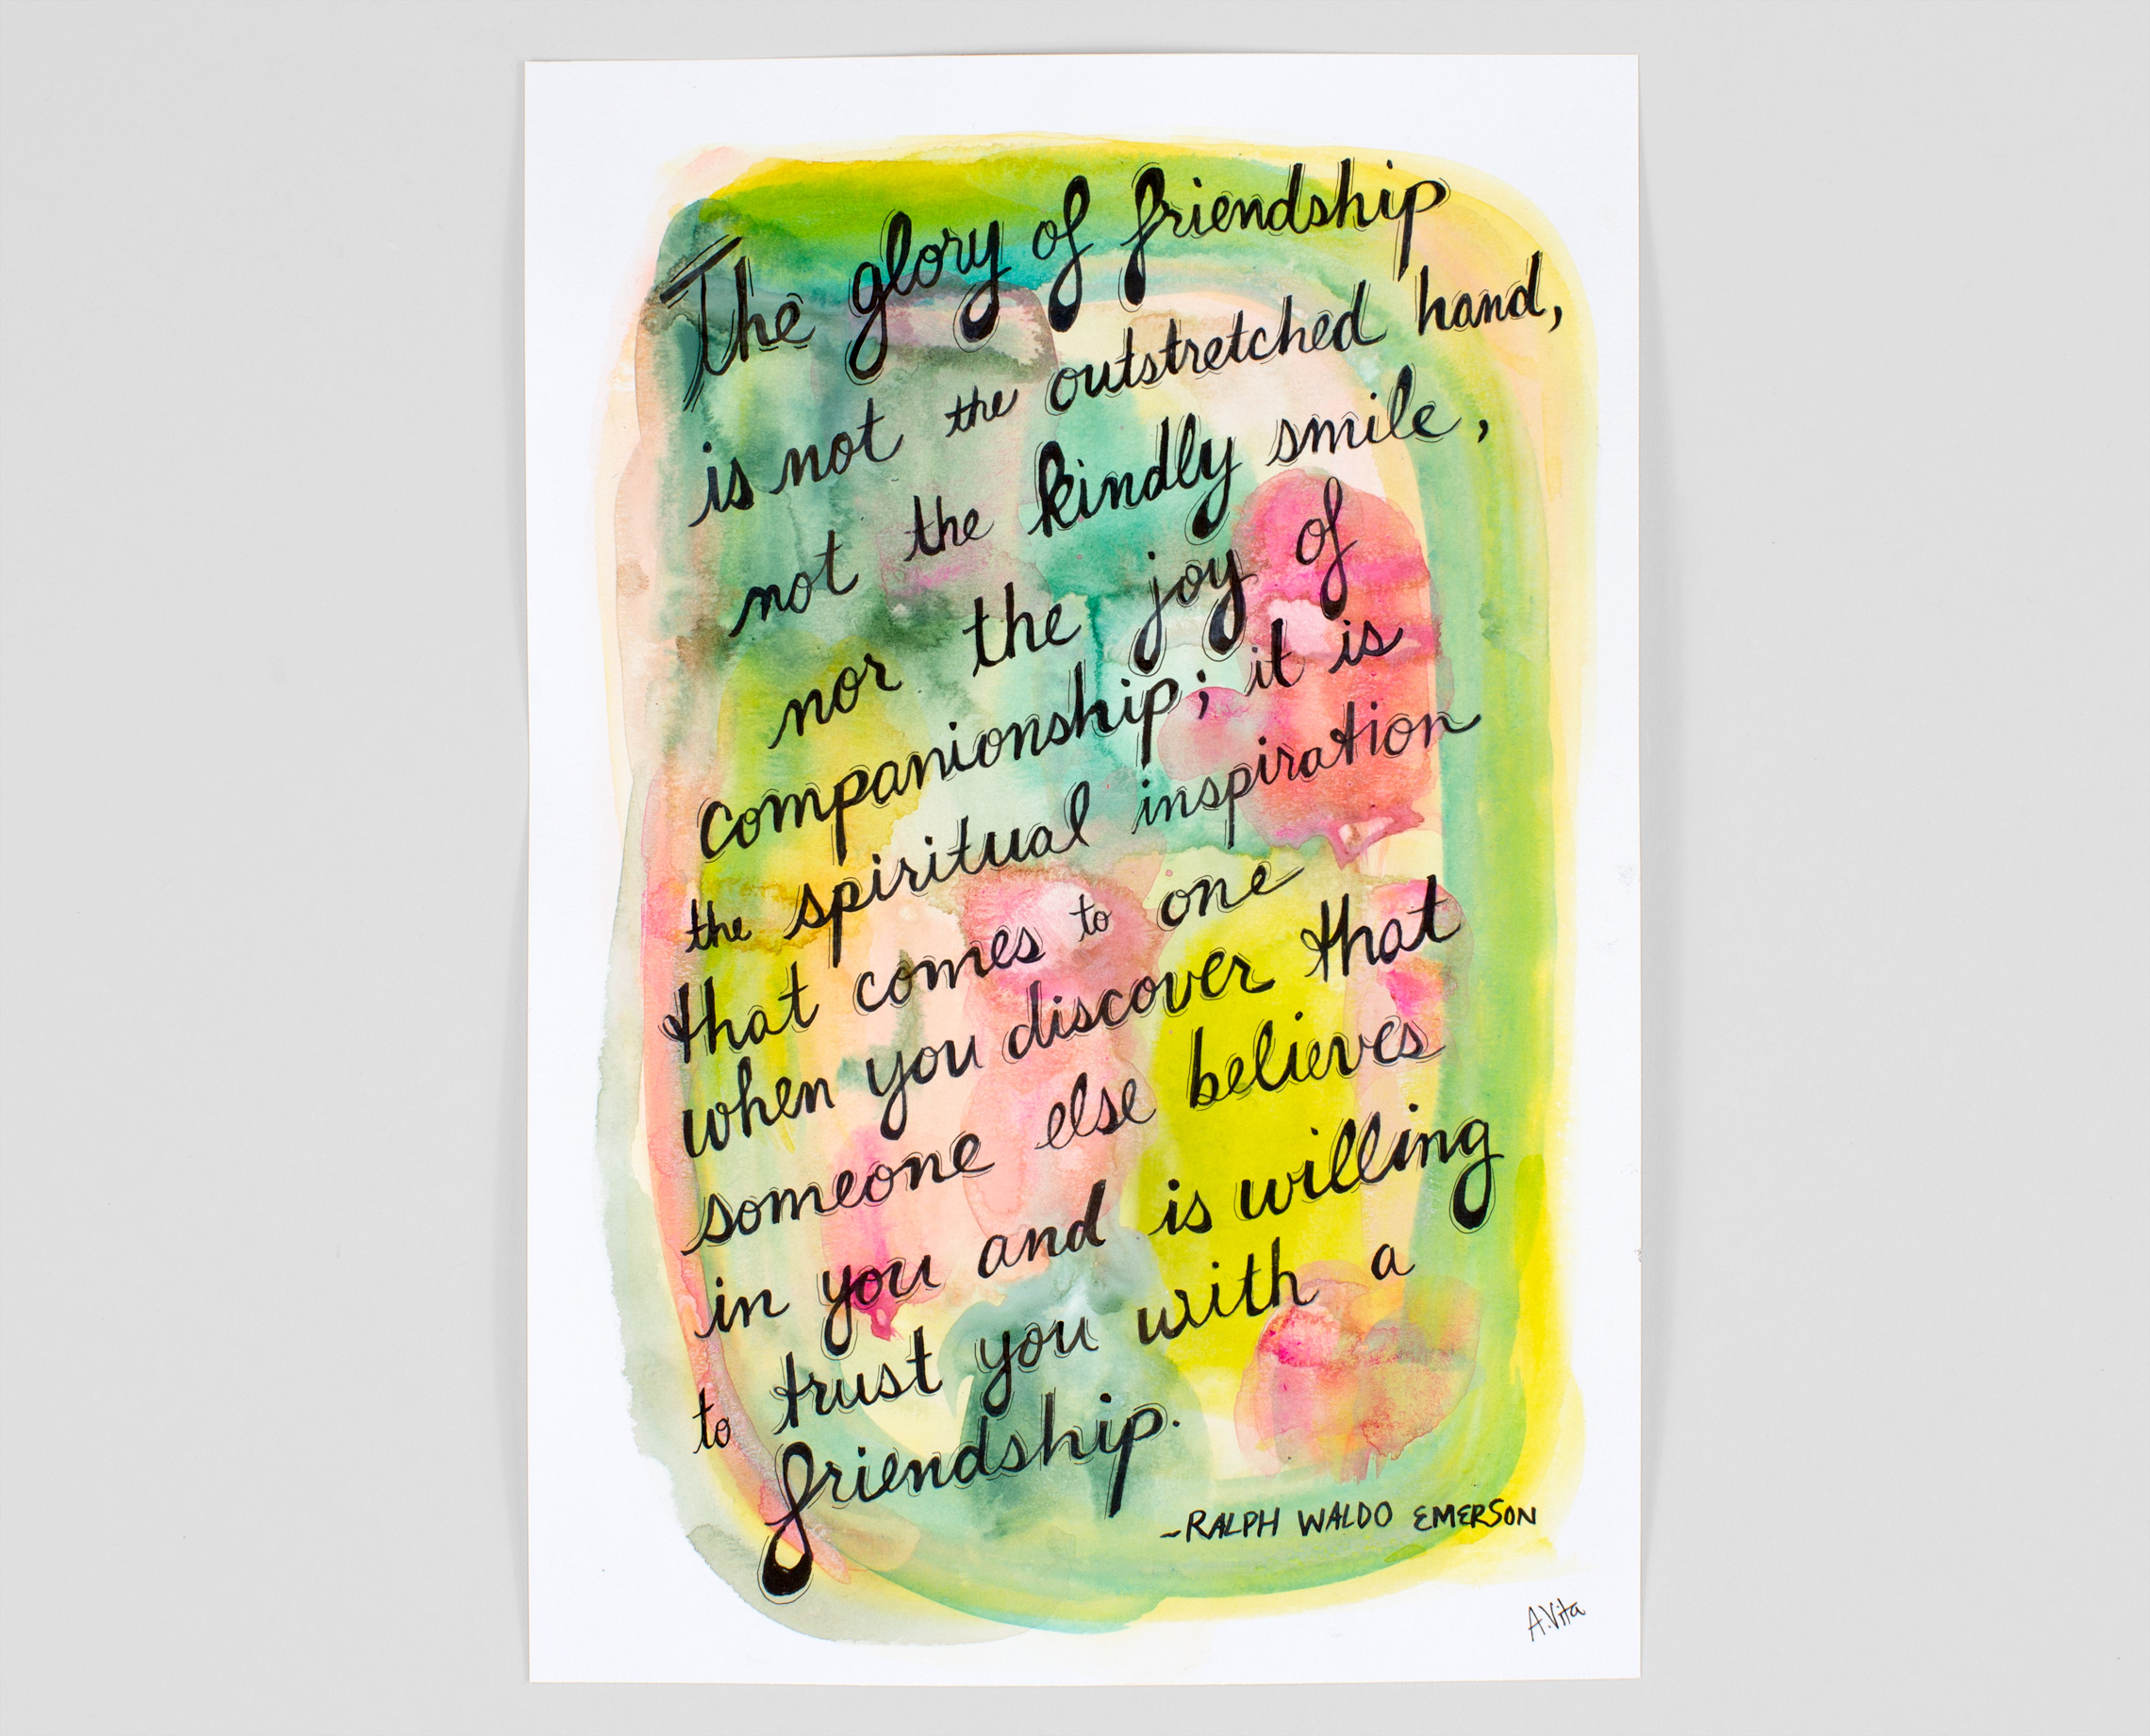 The glory of friendship
is not the outstretched hand,
not the kindly smile,
nor the joy of
companionship; it is
the spiritual inspiration
that comes to one
when you discover that
someone else believes
in you and is willing
to trust you with a
friendship.
~RALPH WALDO EMERSON
A.Vita